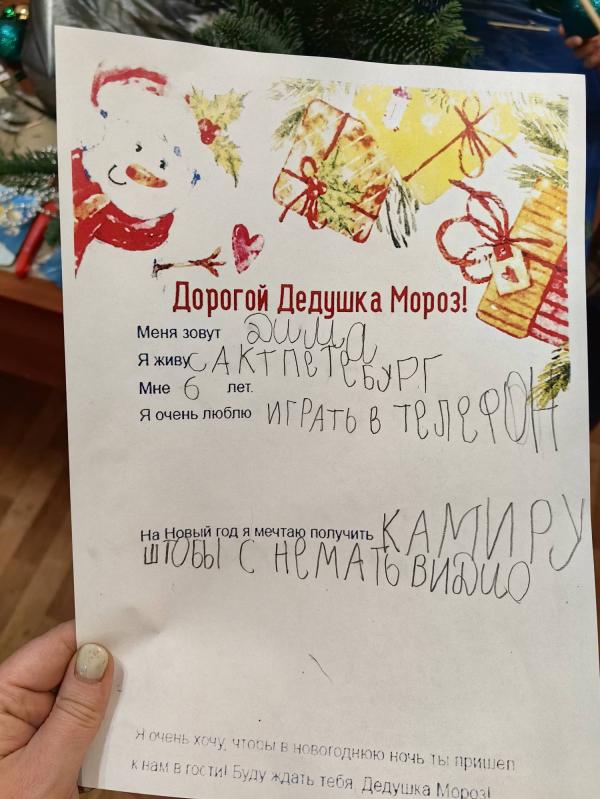 Дорогой Дедушка Мороз!
Меня зовут Дима
Я живу САКТПЕТЕБУРГ
Мне 6 лет.
Я очень люблю ИГРАТЬ В ТЕЛЕФОН
На Новый год я мечтаю получить КАМИРУ
ШТОБЫ С НЕМАТЬ ВИДИО
Я очень хочу, чтобы в новогоднюю ночь ты пришел
к нам в гости! Буду ждать тебя, Дедушка Мороз!